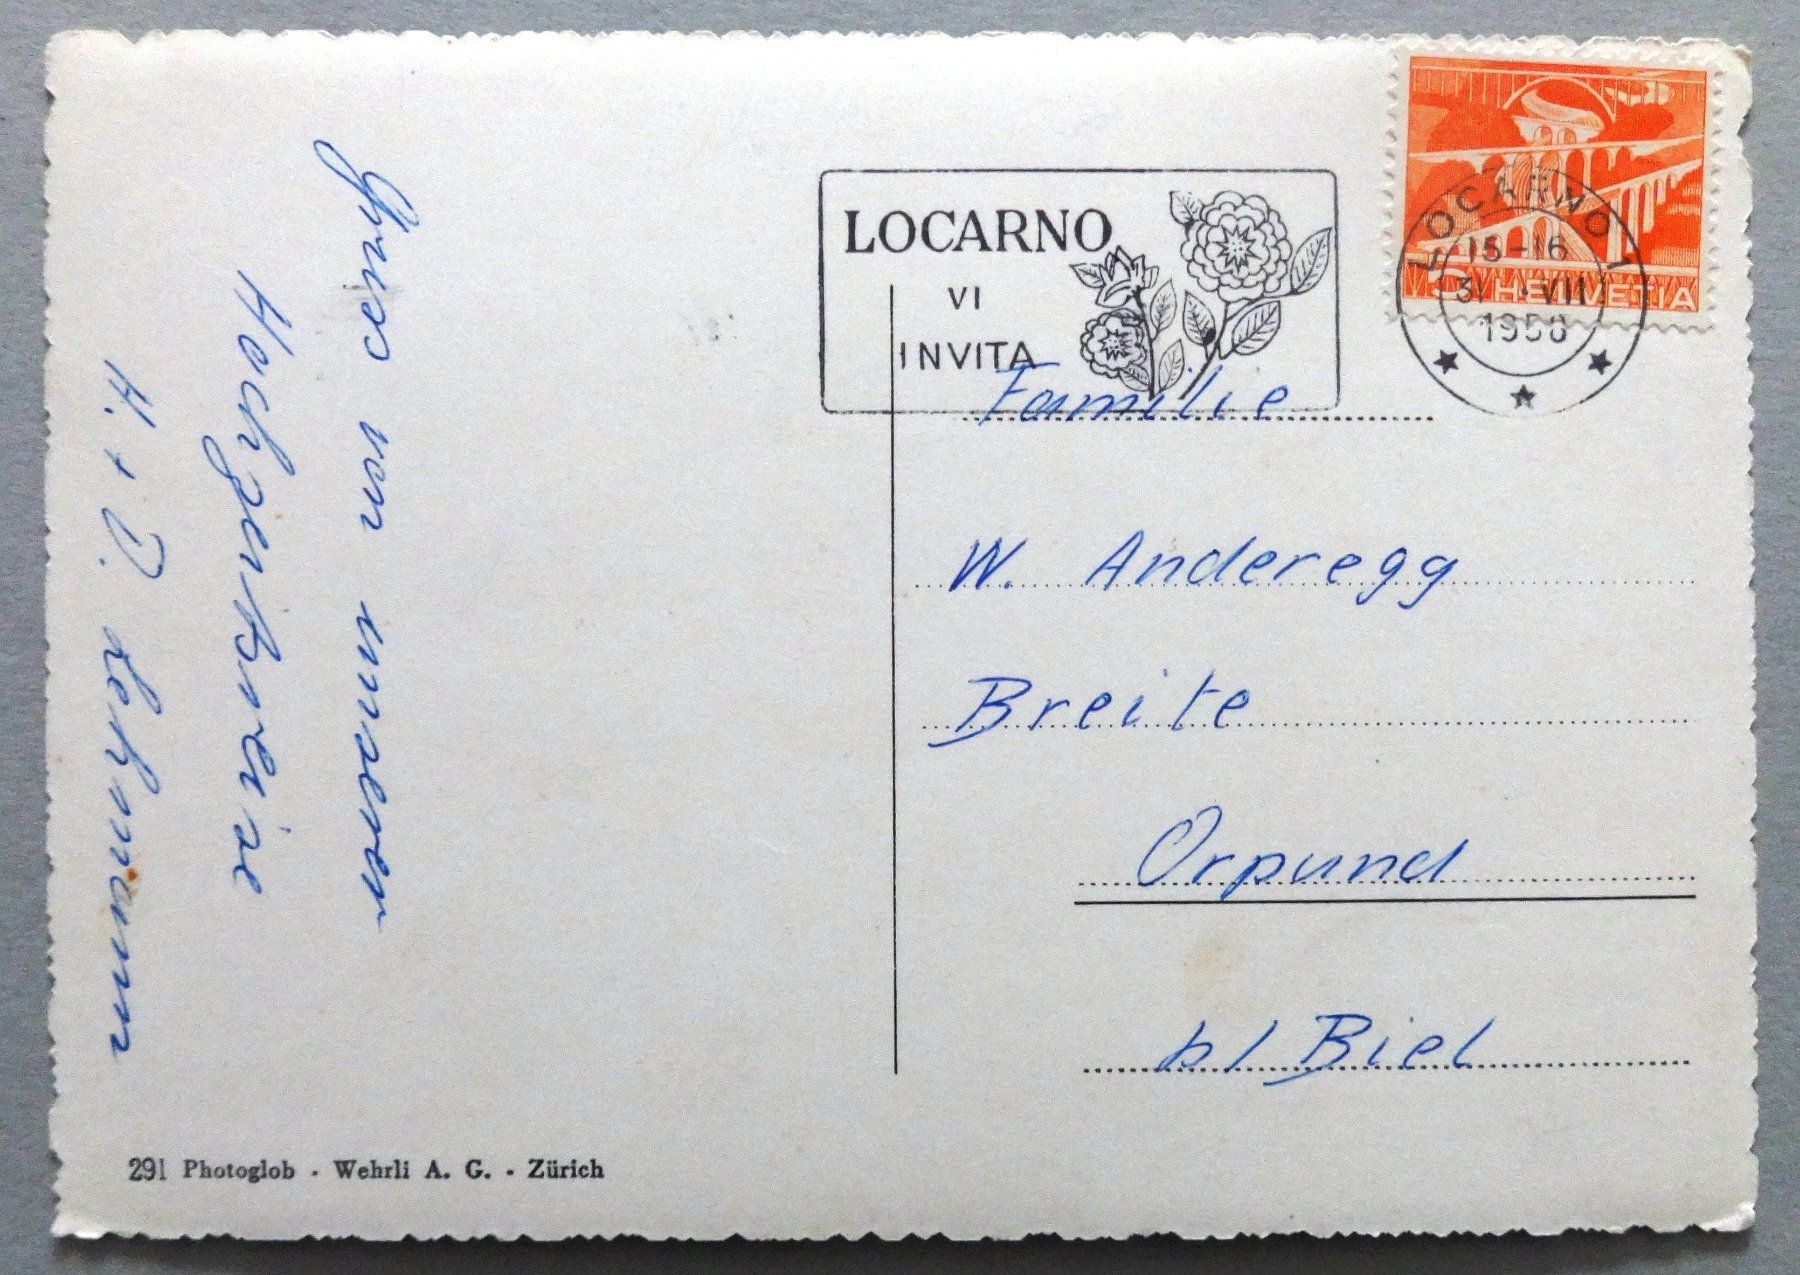 LOCARNO
VI
INVITA
LOCARNO 1
15-16
31.VIII
1956
5 HELVETIA
Familie
W. Anderegg
Breite
Orpund
b/Biel
von unserer
Hochzeitsreise
H. + D.
291 Photoglob · Wehrli A. G. · Zürich